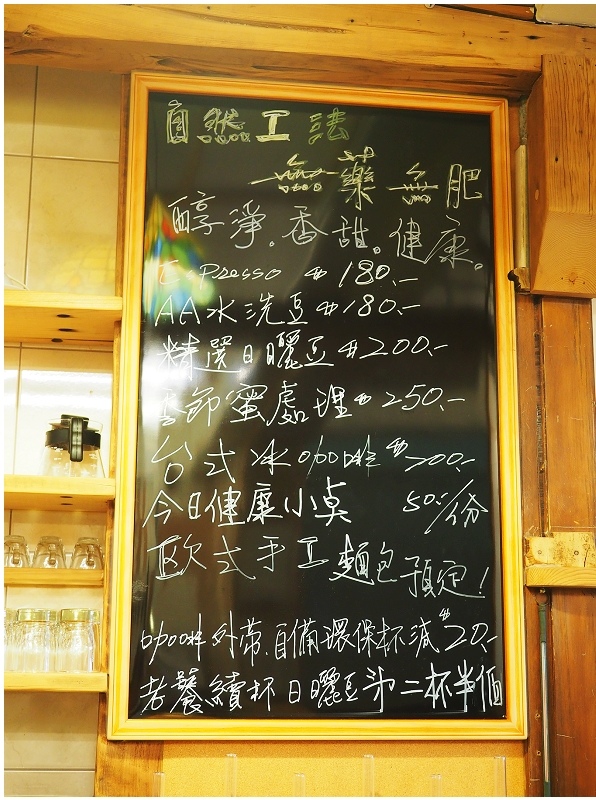 自然工法
無藥無肥
醇淨。香甜。健康。
Espresso $180.-
AA水洗豆 $180.-
精選日曬豆 $200.-
季節蜜處理 $250.-
台式冰咖啡 $200.-
今日健康小點 50.-/份
歐式手工麵包預定!
咖啡外帶.自備環保杯減$20.-
老饕續杯 日曬豆第二杯半價